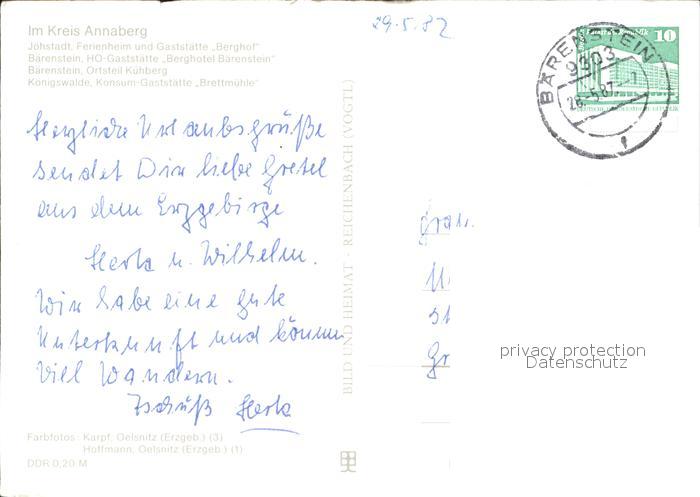 29.5.87
Im Kreis Annaberg
Jöhstadt, Ferienheim und Gaststätte „Berghof"
Bärenstein, HO-Gaststätte „Berghotel Bärenstein"
Bärenstein, Ortsteil Kühberg
Königswalde, Konsum-Gaststätte „Brettmühle"
10
BÄRENSTEIN
9303
28.-5.87.
Herzliche Urlaubsgrüße
sendet Dir liebe Gretel
aus dem Erzgebirge
Herta u. Wilhelm.
Wir habe eine gute
Unterkunft und können
viel Wandern.
Tschüß Herta
BILD UND HEIMAT · REICHENBACH (VOGTL)
Frau
privacy protection
Datenschutz
Farbfotos: Karpf, Oelsnitz (Erzgeb.) (3)
Hoffmann, Oelsnitz (Erzgeb.) (1)
DDR 0,20 M